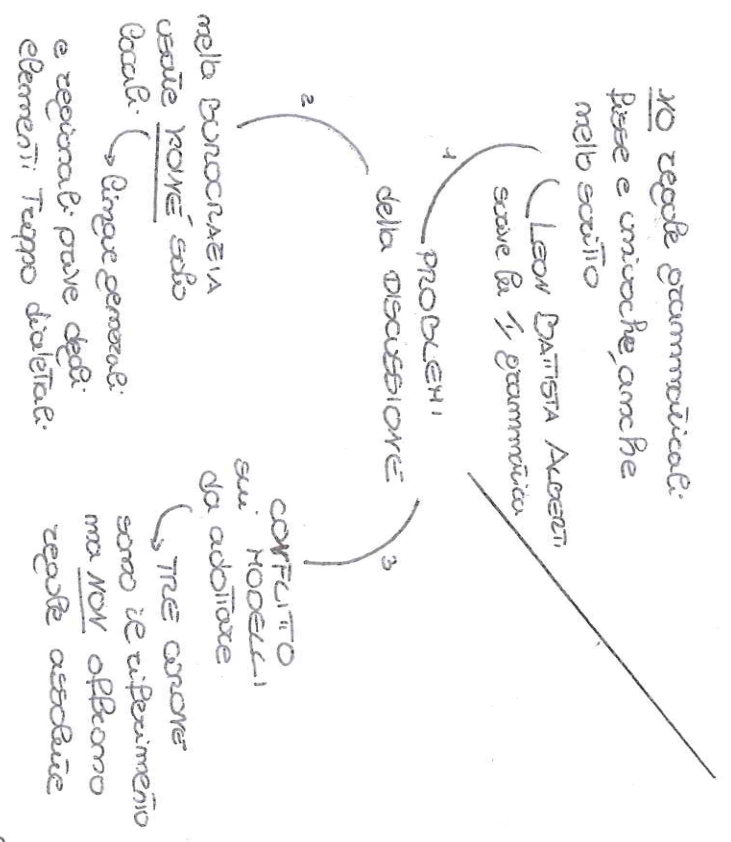 PROBLEMI
della DISCUSSIONE
1
NO regole grammaticali
fisse e univoche, anche
nello scritto
LEON BATTISTA ALBERTI
scrive la 1ª grammatica
2
nella BUROCRAZIA
usate KOINÉ solo
locali
lingue generali
e regionali prive degli
elementi troppo dialettali
3
CONFLITTO
sui MODELLI
da adottare
TRE CORONE
sono il riferimento
ma NON offrono
regole assolute